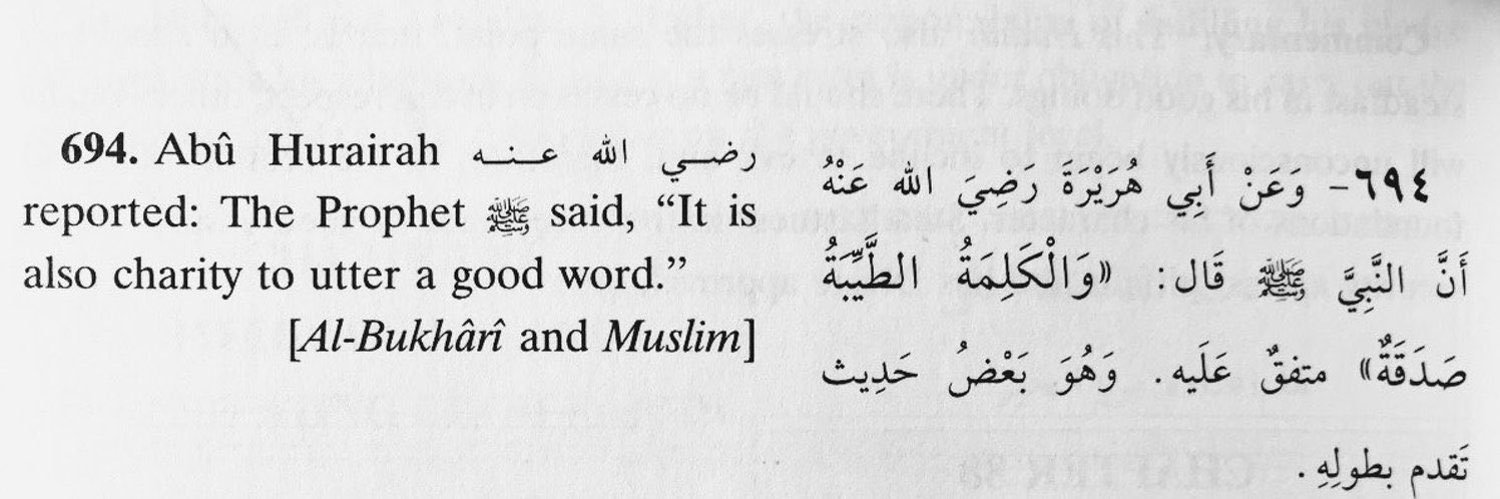 694. Abû Hurairah رضي الله عنه
reported: The Prophet ﷺ said, “It is
also charity to utter a good word.”
[Al-Bukhârî and Muslim]
٦٩٤- وَعَنْ أَبِي هُرَيْرَةَ رَضِيَ الله عَنْهُ
أَنَّ النَّبِيَّ ﷺ قَال: «وَالْكَلِمَةُ الطَّيِّبَةُ
صَدَقَةٌ» متفقٌ عَلَيه. وَهُوَ بَعْضُ حَدِيث
تَقدم بطولِهِ.